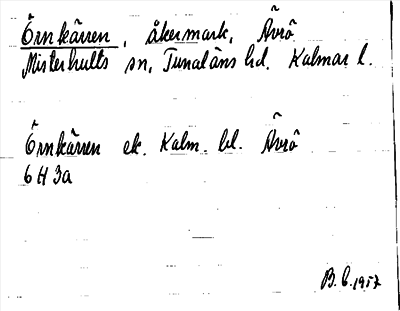 Örnkärren, åkermark, Ävrö
Misterhults sn, Tunaläns hd. Kalmar l.
Örnkärren ek. Kalm. bl. Ävrö
6 H 3a
B. C. 1957